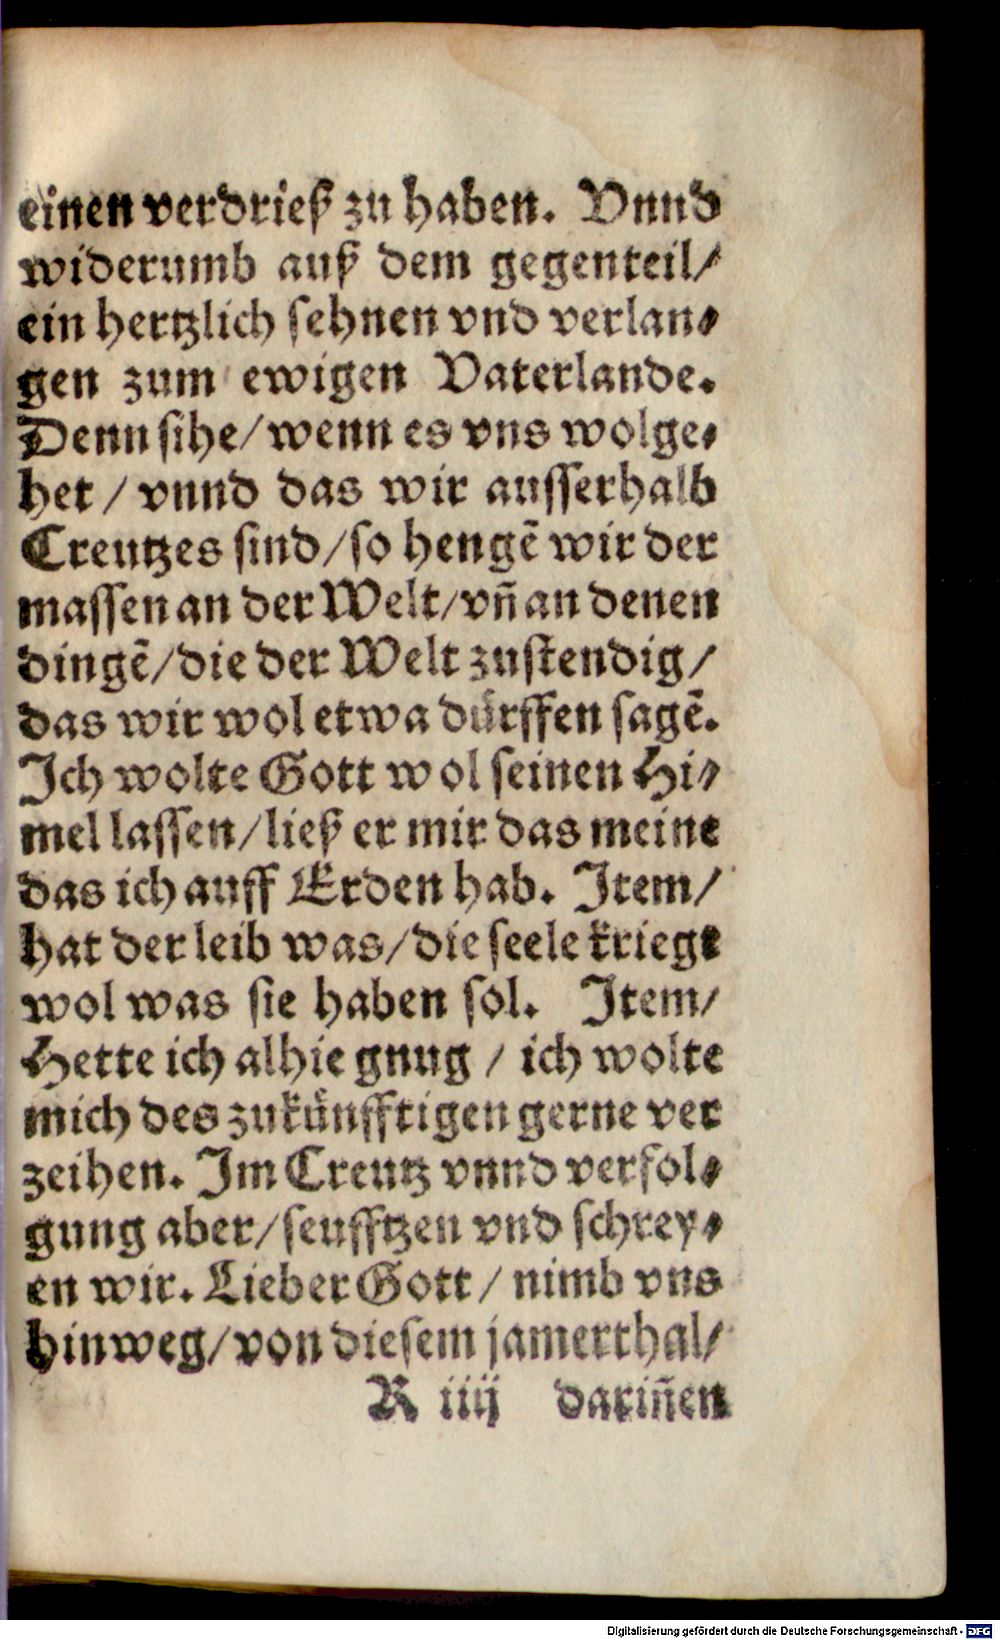 einen verdrieß zu haben. Vnnd
widerumb auß dem gegenteil/
ein hertzlich sehnen vnd verlan⸗
gen zum ewigen Vaterlande.
Denn sihe/ wenn es vns wolge⸗
het / vnnd das wir ausserhalb
Creutzes sind/ so hengẽ wir der
massen an der Welt/ vñ an denen
dingẽ/ die der Welt zustendig/
das wir wol etwa dürffen sagẽ.
Ich wolte Gott wol seinen Hi⸗
mel lassen/ ließ er mir das meine
das ich auff Erden hab. Item/
hat der leib was/ die seele kriegt
wol was sie haben sol. Item/
Hette ich alhie gnug / ich wolte
mich des zukünfftigen gerne ver
zeihen. Im Creutz vnnd verfol⸗
gung aber/ seufftzen vnd schrey⸗
en wir. Lieber Gott / nimb vns
hinweg/ von diesem jamerthal/
R iiij dariñen
Digitalisierung gefördert durch die Deutsche Forschungsgemeinschaft - DFG